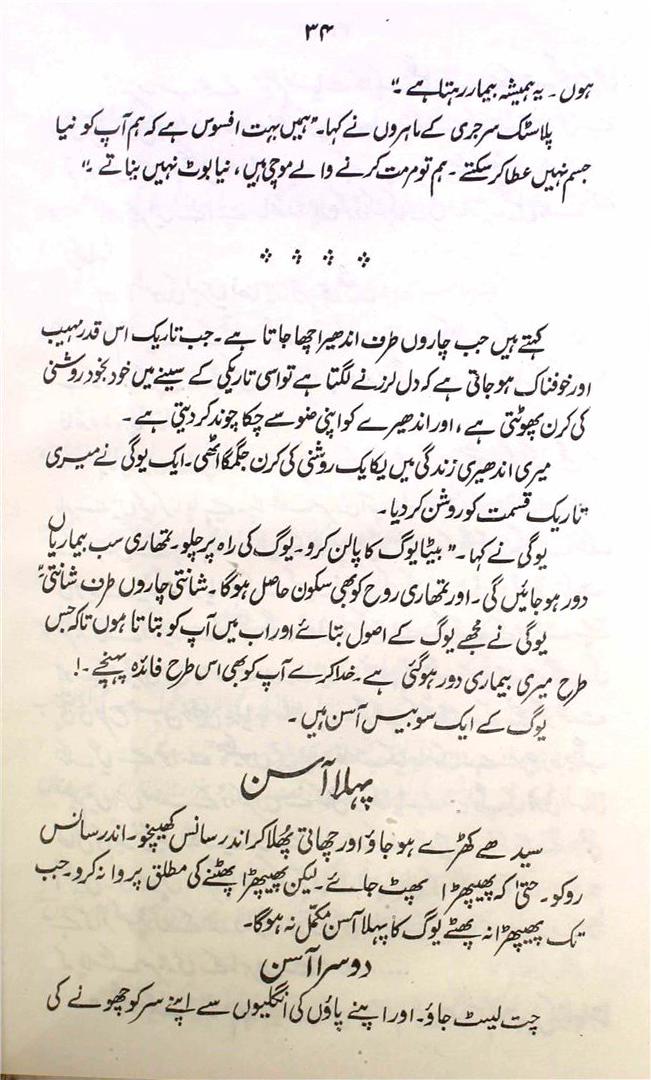 ۳۴
ہوں۔ یہ ہمیشہ بیمار رہتا ہے۔"
پلاسٹک سرجری کے ماہروں نے کہا۔ "ہمیں بہت افسوس ہے کہ ہم آپ کو نیا
جسم نہیں عطا کر سکتے۔ ہم تو مرمت کرنے والے موچی ہیں، نیا بوٹ نہیں بناتے۔"
کہتے ہیں جب چاروں طرف اندھیرا چھا جاتا ہے۔ جب تاریک اس قدر مہیب
اور خوفناک ہو جاتی ہے کہ دل لرزنے لگتا ہے تو اسی تاریکی کے سینے میں خود بخود روشنی
کی کرن پھوٹتی ہے، اور اندھیرے کو اپنی ضو سے چکا چوند کر دیتی ہے۔
میری اندھیری زندگی میں یکایک روشنی کی کرن جگمگا اٹھی۔ ایک یوگی نے میری
تاریک قسمت کو روشن کر دیا۔
یوگی نے کہا۔ "بیٹا یوگ کا پالن کرو۔ یوگ کی راہ پر چلو۔ تمھاری سب بیماریاں
دور ہو جائیں گی۔ اور تمھاری روح کو بھی سکون حاصل ہوگا۔ شانتی چاروں طرف شانتی"
یوگی نے مجھے یوگ کے اصول بتائے اور اب میں آپ کو بتاتا ہوں تاکہ جس
طرح میری بیماری دور ہو گئی ہے۔ خدا کرے آپ کو بھی اس طرح فائدہ پہنچے۔!
یوگ کے ایک سو بیس آسن ہیں۔
پہلا آسن
سیدھے کھڑے ہو جاؤ اور چھاتی پُھلا کر اندر سانس کھینچو۔ اندر سانس
روکو۔ حتیٰ کہ پھیپھڑا پھٹ جائے۔ لیکن پھیپھڑا پھٹنے کی مطلق پروا نہ کرو۔ جب
تک پھیپھڑا نہ پھٹے یوگ کا پہلا آسن مکمّل نہ ہوگا۔
دوسرا آسن
چت لیٹ جاؤ۔ اور اپنے پاؤں کی انگلیوں سے اپنے سر کو چھونے کی